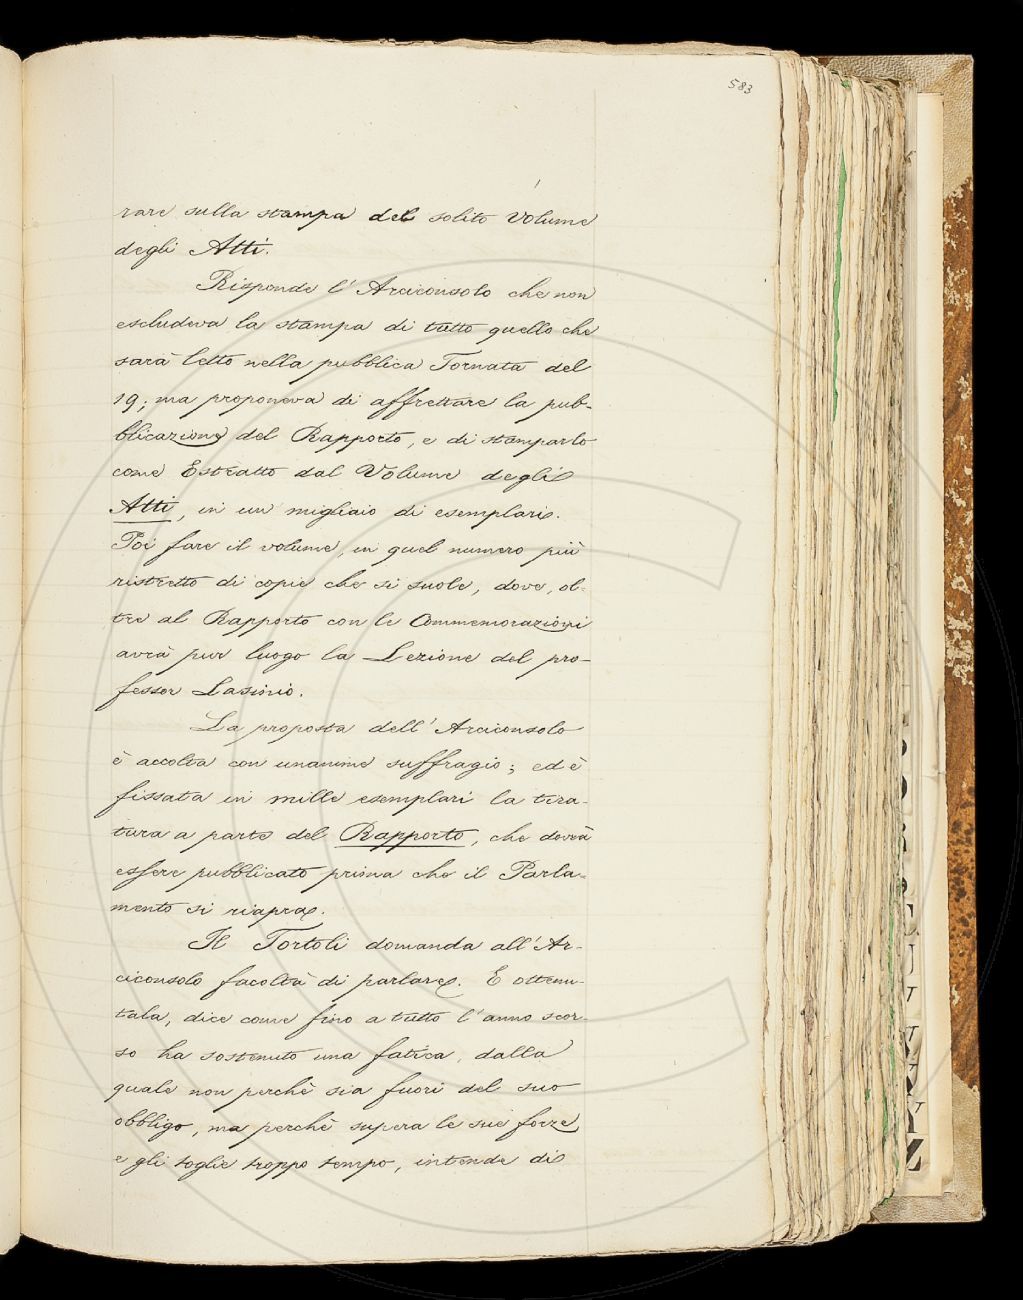 583
rare sulla stampa del solito Volume
degli Atti.
Risponde l'Arciconsolo che non
escludeva la stampa di tutto quello che
sarà letto nella pubblica Tornata del
19; ma proponeva di affrettare la pub-
blicazione del Rapporto, e di stamparlo
come Estratto dal Volume degli
Atti, in un migliaio di esemplari.
Poi fare il volume, in quel numero più
ristretto di copie che si suole, dove, ol-
tre al Rapporto con le Commemorazioni
avrà pur luogo la Lezione del pro-
fessor Lasinio.
La proposta dell'Arciconsolo
è accolta con unanime suffragio; ed è
fissata in mille esemplari la tira-
tura a parte del Rapporto, che dovrà
essere pubblicato prima che il Parla-
mento si riapra.
Il Tortoli domanda all'Ar-
ciconsolo facoltà di parlare. E ottenu-
tala, dice come fino a tutto l'anno scor-
so ha sostenuto una fatica, dalla
quale non perchè sia fuori del suo
obbligo, ma perchè supera le sue forze
e gli toglie troppo tempo, intende di